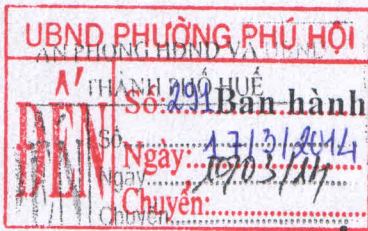 UBND PHƯỜNG PHÚ HỘI
VĂN PHÒNG HĐND VÀ UBND
THÀNH PHỐ HUẾ
ĐẾN
Số: 291 Ban hành
Số
Ngày: 17/3/2014
Ngày 10/03/14
Chuyển:
Chuyển